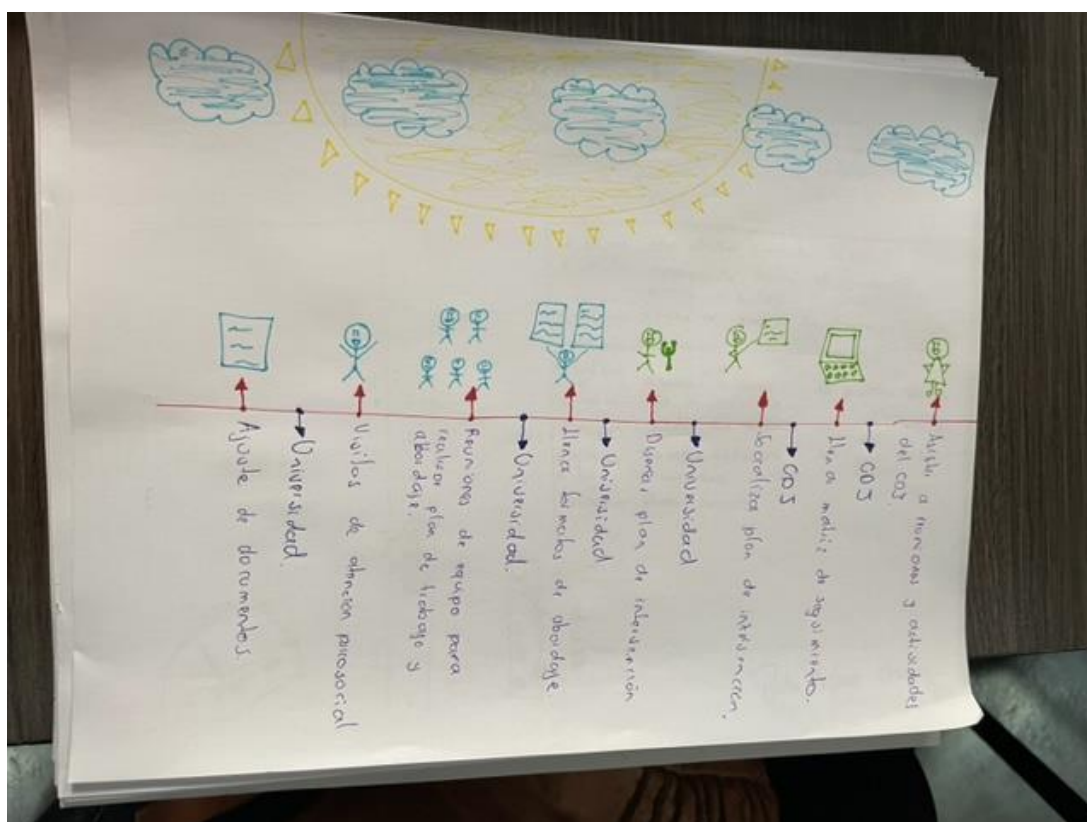 Asistir a reuniones y actividades
del COJ.
COJ
Llenar matriz de seguimiento.
COJ
Socializa plan de intervención.
Universidad
Diseñar plan de intervención
Universidad
Llenar formatos de abordaje
Universidad.
Reuniones de equipo para
realizar plan de trabajo y
abordaje.
Visitas de atención psicosocial
Universidad.
Ajuste de documentos.